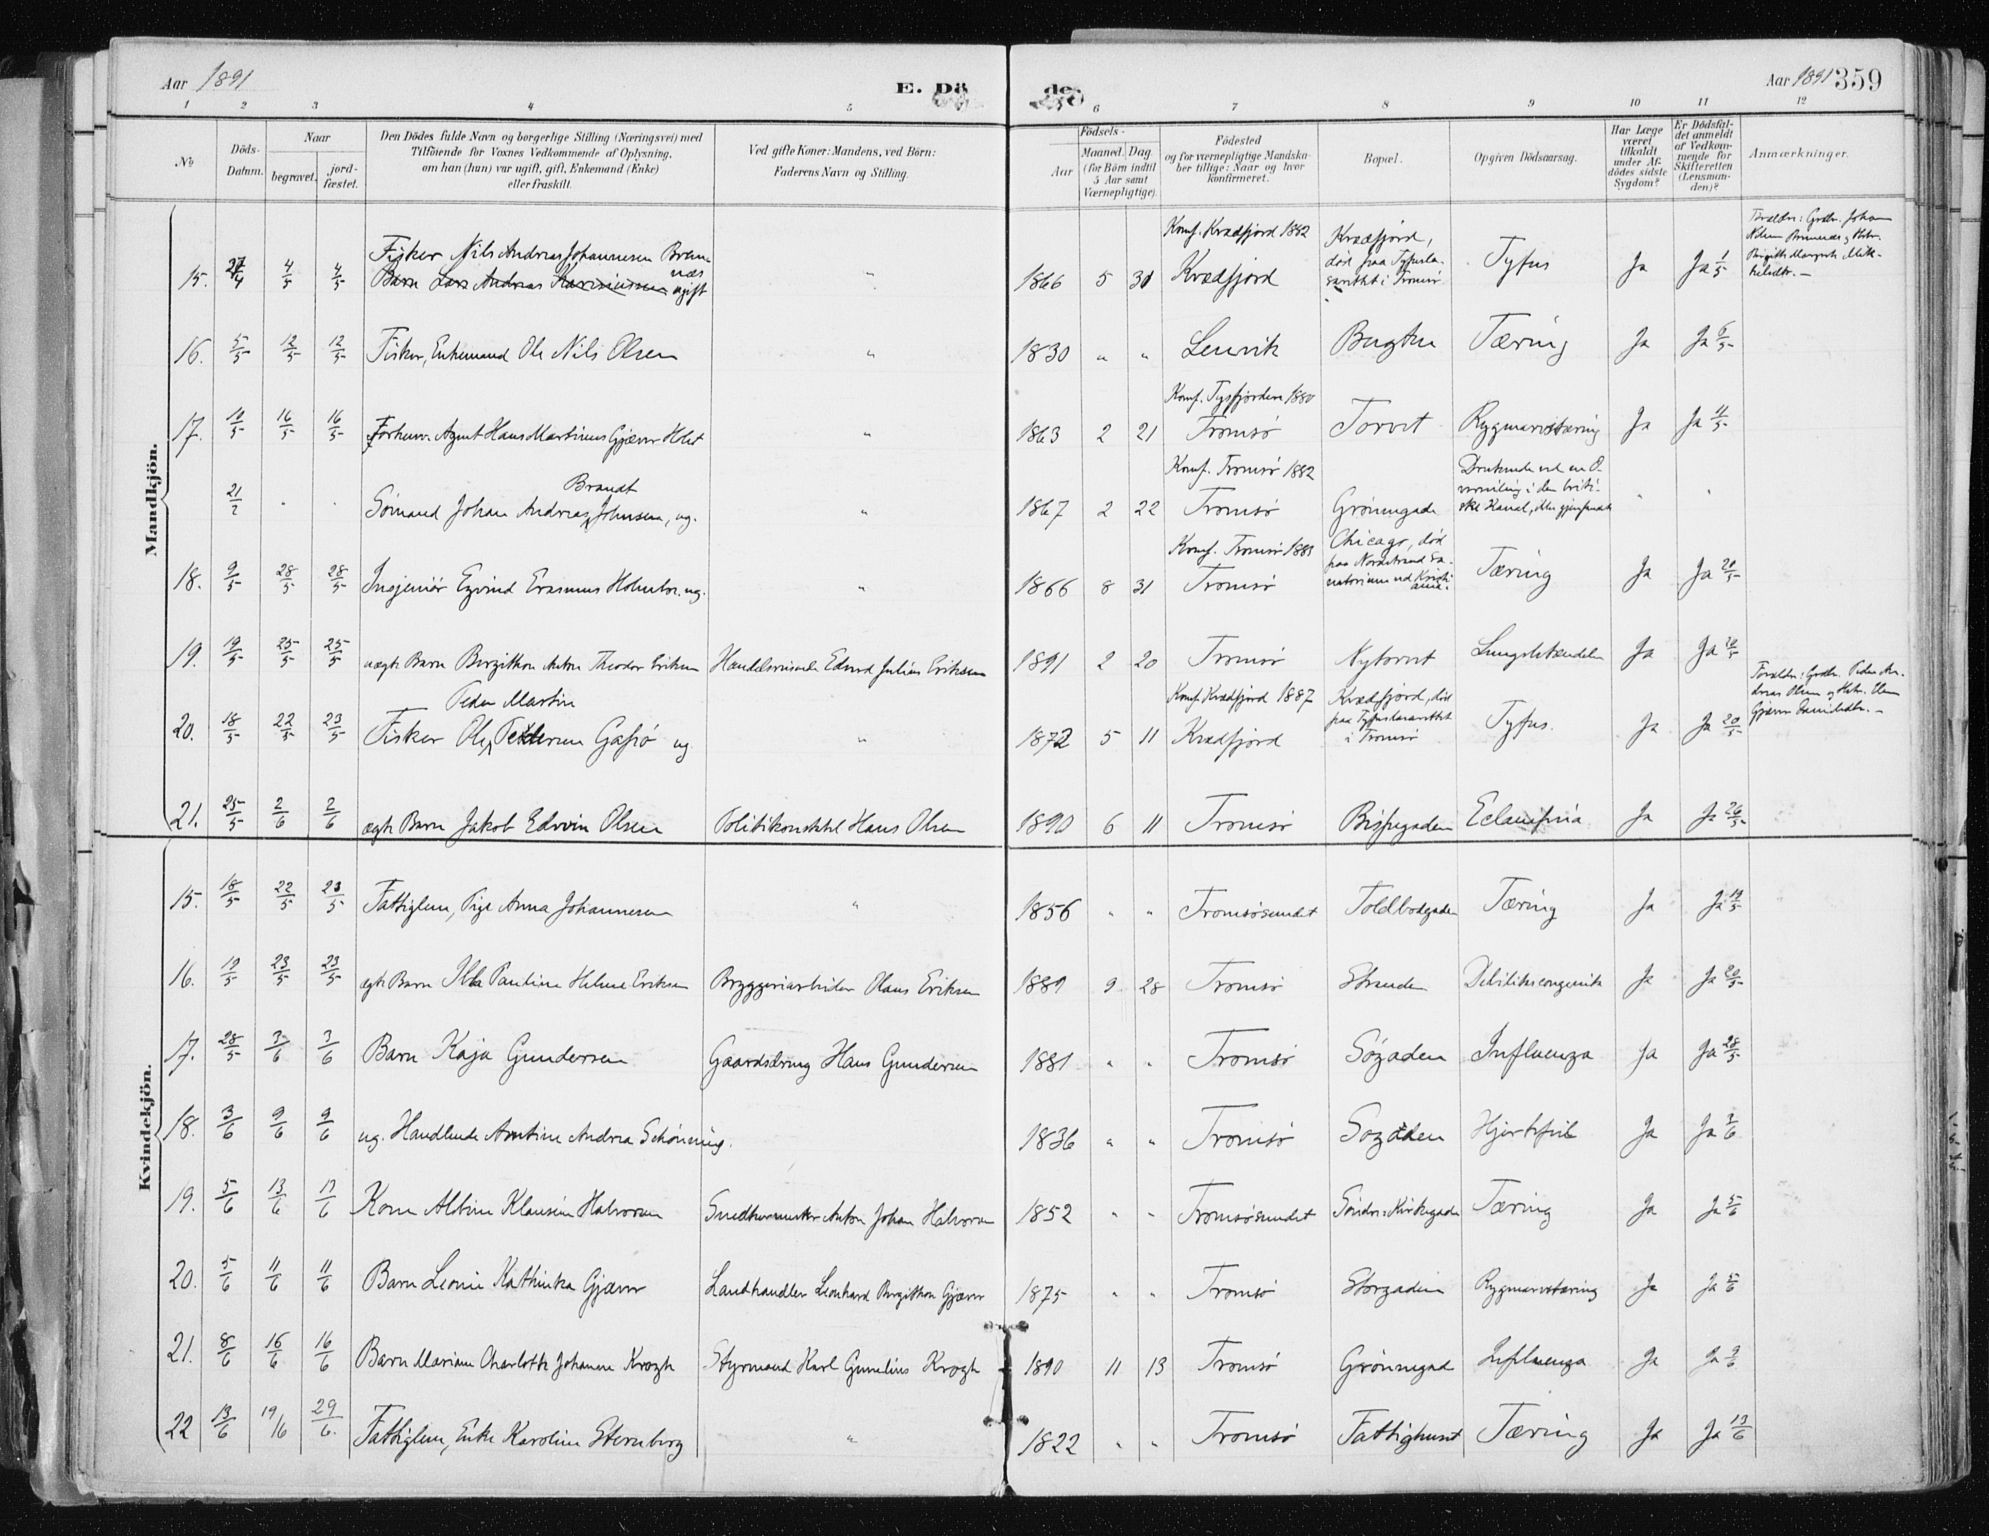 Aar 1891
E. Dö
de
Aar 1891 359
1 2 3 4 5 6 7 8 9 10 11 12
№
Döds-
Datum.
Naar
begravet.
jord-
fæstet.
Den Dödes fulde Navn og borgerlige Stilling (Næringsvei) med
Tilföiende for Voxnes Vedkommende af Oplysning,
om han (hun) var ugift, gift, Enkemand (Enke)
eller fraskilt.
Ved gifte Koner: Mandens, ved Börn:
Faderens Navn og Stilling.
Födsels-
Aar
Maaned.
Dag
(for Börn indtil
5 Aar samt
Værnepligtige).
Födested
og for værnepligtige Mandska-
ber tillige: Naar og hvor
konfirmeret.
Bopæl.
Opgiven Dödsaarsag.
Har Læge
været
tilkaldt
under Af-
dödes sidste
Sygdom?
Er Dödsfal-
det anmeldt
af Vedkom-
mende for
Skifteretten
(Lensman-
den)?
Anmærkninger.
Mandkjön.
15. 27/4 4/5 4/5 Fisker Nils Andreas Johannesen Bræn-
næs
Barn Lars Andreas ugift
" 1866 5 31 Konf. Kvædfjord 1882
Kvædfjord
Kvædfjord,
død paa Tyfusla-
sarettet i Tromsø
Tyfus Ja Ja 1/5
Forældre: Grdbr. Johan
16. 5/5 12/5 12/5 Fisker, Enkemand Ole Nils Olsen " 1830 " " Lenvik Bugten Tæring Ja Ja 6/5
17. 10/5 16/5 16/5 Forhenv. Agent Hans Martinus Gjæver Holst " 1863 2 21 Konf. Tysfjorden 1880
Tromsø Torvet Rygmarvstæring Ja Ja 11/5
21/2 " " Sømand Johan Andreas Brandt Johnsen, ug. " 1867 2 22 Konf. Tromsø 1882
Tromsø Grønnegade Druknede ved en
i den briti-
ske Kanal, " "
18. 9/5 28/5 28/5 Ingeniør Eyvind Erasmus Holmboe. ug. " 1866 8 31 Konf. Tromsø 1881
Tromsø Chicago, død
paa Nordstrand Sa-
natorium ved Kristi-
ania.
Tæring Ja Ja 20/5
19. 19/5 25/5 25/5 uægte Barn Birgithon Anton Theodor Eriksen Handelsreisende Edvard Julius Eriksen 1891 2 20 Tromsø Nytorvet Ja Ja 20/5
20. 18/5 22/5 23/5 Fisker Ole Peder Martin Pedersen Gafsø ug " 1872 5 11 Konf. Kvædfjord 1887
Kvædfjord Kvædfjord, død
paa Tyfuslasarettet
i Tromsø
Tyfus. Ja Ja 20/5
Forældre: Grdbr. Peder An-
dreas Olsen og Hstr.
21. 25/5 2/6 2/6 ægte Barn Jakob Edvin Olsen Politikonstabel Hans Olsen 1890 6 11 Tromsø Bispegaden Eclampsia Ja Ja 26/5
Kvindekjön.
15. 18/5 22/5 23/5 Fattiglem, Pige Anna Johannesen " 1856 " " Tromsøsundet Toldbodgaden Tæring Ja Ja 19/5
16. 19/5 23/5 23/5 ægte Barn Pauline Helene Eriksen Bryggeriarbeider Olaus Eriksen 1889 9 28 Tromsø Stranden Debilitas congenita Ja Ja 20/5
17. 28/5 3/6 3/6 Barn Kaja Gundersen Gaardsdreng Hans Gundersen 1881 " " Tromsø Søgaden Influenza Ja Ja 28/5
18. 3/6 9/6 9/6 ug. Handlende Antine Andrea Schønning. 1836 " " Tromsø Søgaden Hjertefeil Ja Ja 3/6
19. 5/6 13/6 13/6 Kone Albine Klausine Halvorsen Snedkermester Anton Johan Halvorsen 1852 " " Tromsøsundet Søndre Kirkegade Tæring Ja Ja 5/6
20. 5/6 11/6 11/6 Barn Leonie Kathinka Gjæver Landhandler Leonhard Birgithon Gjæver 1875 " " Tromsø Storgaden Rygmarvstæring Ja Ja 5/6
21. 8/6 16/6 16/6 Barn Mariane Charlotte Johanne Krogh Styrmand Karl Gunelius Krogh 1890 11 13 Tromsø Grønnegad Influenza Ja Ja 9/6
22 13/6 19/6 29/6. Fattiglem, Enke Karoline Sternberg " 1822 " " Tromsø Fattighuset Tæring Ja Ja 13/6